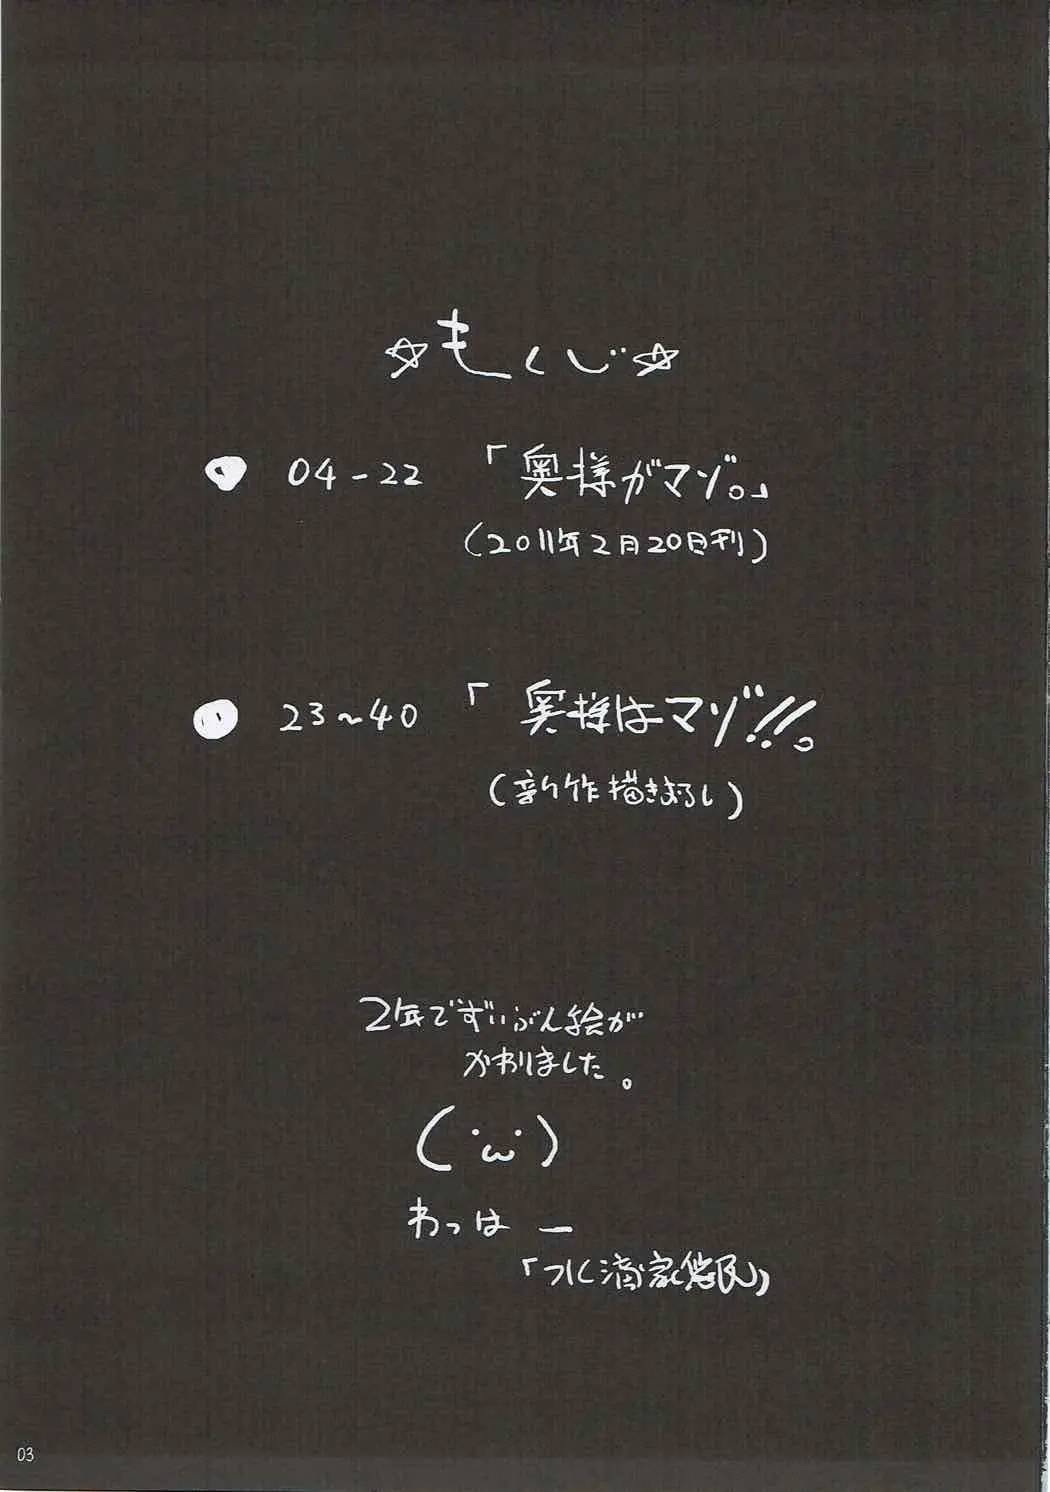 ☆もくじ☆
04-22 「奥様がマゾ。」
(2011年2月20日刊)
23~40 「奥様はマゾ!!。
(新作描きおろし)
2年でずいぶん絵が
かわりました。
(･ω･)
わっはー
03